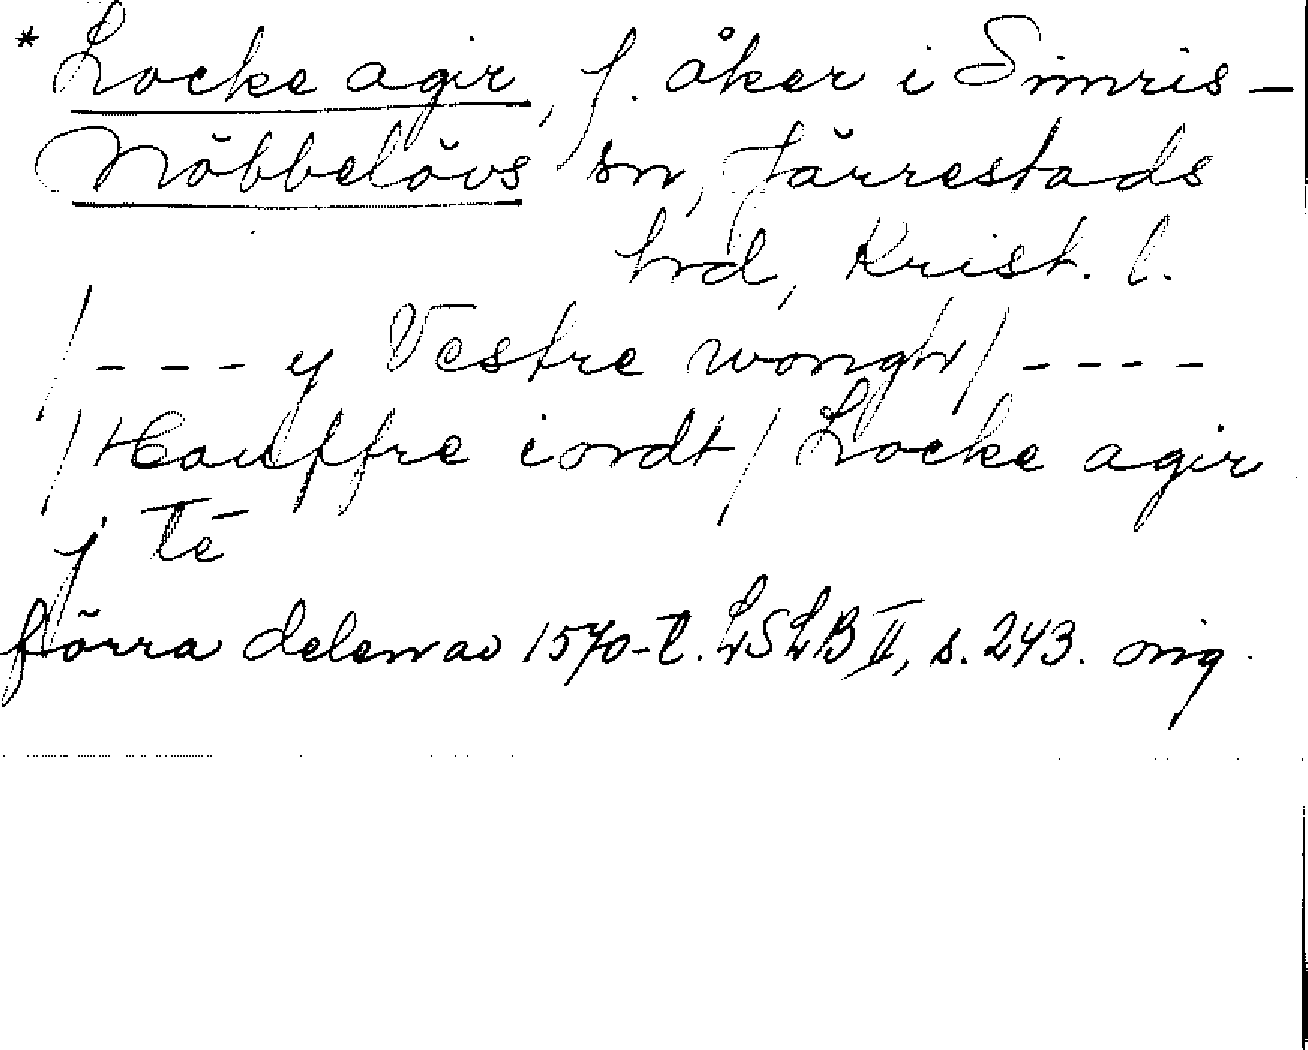 * Locke agir, f. åker i Simris-
Nöbbelövs sn, Järrestads
hrd, Krist. l.
/---- y Vestre wongh/ ----
/Hauffre iordt/ Locke agir
j té
förra delen av 1570-t. LSLB II, s. 243. orig.